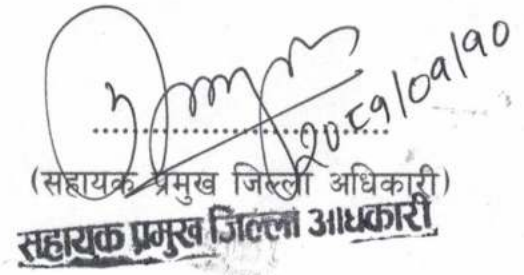 २०८१/०१/१०
(सहायक प्रमुख जिल्ला अधिकारी)
सहायक प्रमुख जिल्ला अधिकारी